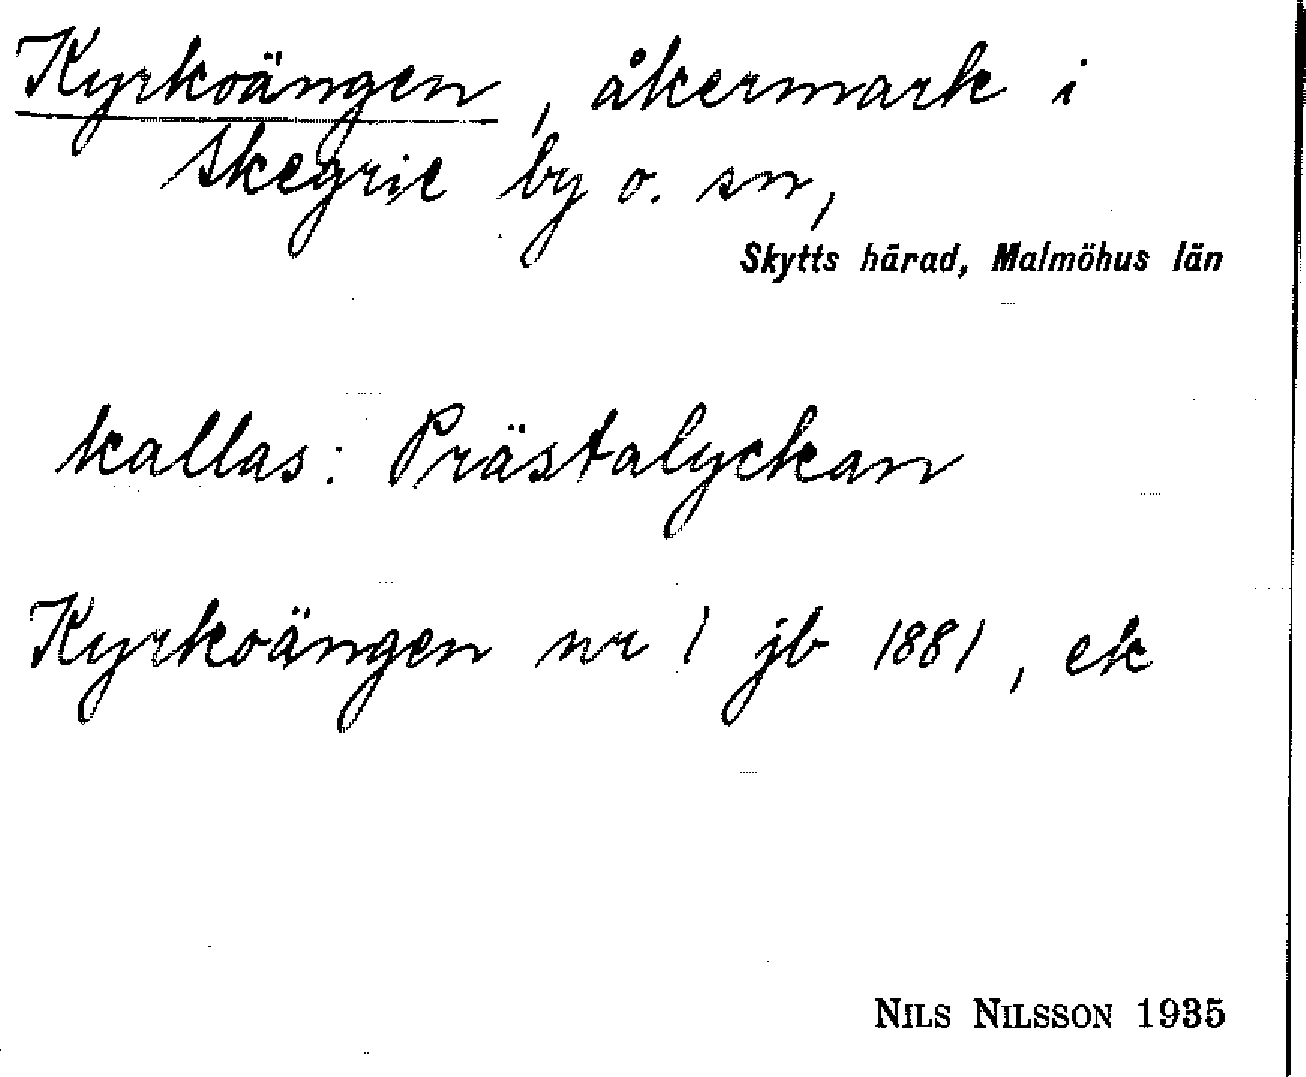 Kyrkoängen, åkermark i
Skegrie by o. sn,
Skytts härad, Malmöhus län
kallas: Prästalyckan
Kyrkoängen nr 1 jb 1881, ek
NILS NILSSON 1935